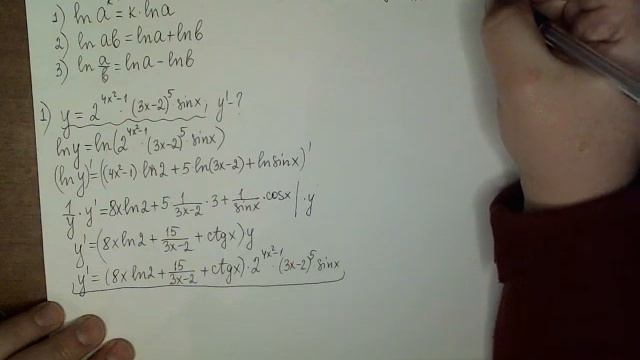 1) ln a^k = k·ln a
2) ln ab = ln a + ln b
3) ln a/b = ln a - ln b
1) y = 2^(4x²-1)·(3x-2)^5·sinx; y'-?
ln y = ln(2^(4x²-1)·(3x-2)^5·sinx)
(ln y)' = ((4x²-1) ln2 + 5 ln(3x-2) + ln sinx)'
1/y · y' = 8x ln2 + 5· 1/(3x-2) ·3 + 1/sinx · cosx |· y
y' = (8x ln2 + 15/(3x-2) + ctgx) y
y' = (8x ln2 + 15/(3x-2) + ctgx)·2^(4x²-1)·(3x-2)^5 sinx